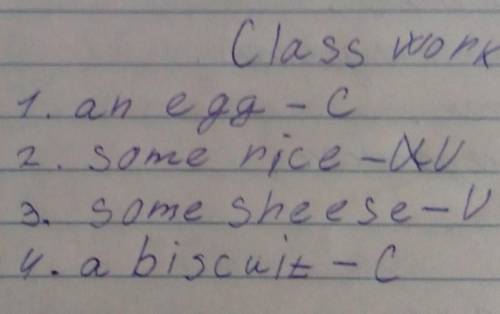 Class work
1. an egg - C
2. some rice - U
3. some sheese - U
4. a biscuit - C